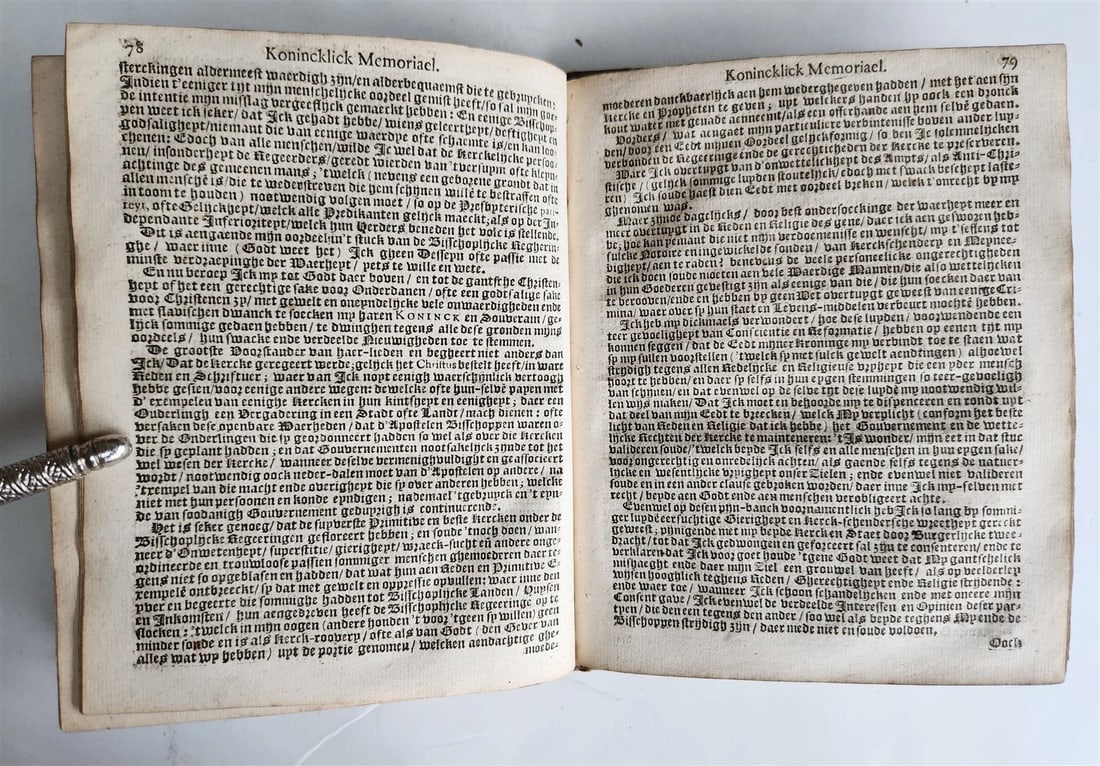 78
Konincklick Memoriael.
sterckingen aldermeest waerdigh zijn/en alderbequaemst die te gebruycken:
Indien t'eeniger tijt mijn menschelijcke oordeel gemist heeft/so sal mijn goe-
de intentie mijn misslag vergeeflijck gemaeckt hebben: En eenige Bisschop-
pen weet ick seker/dat Ick gehadt hebbe/wiens geleertheyt/deftigheyt en
godsaligheyt/niemant die van eenige waerdye ofte schaemte is/en kan loo-
chenen: Edoch van alle menschen/wilde Ic wel dat de Kerckelijcke persoo-
nen/insonderheyt de Regeerders/geredt wierden van 't versuym ofte kleyn-
achtinge des gemeenen mans; 'twelck (nevens een geboren grondt dat in
allen menschē is/die te wederstreven die hem schijnen willē te bestraffen ofte
in toom te houden) nootwendig volgen moet/so op de Presbyterische
teyt, ofte Gelijckheyt/welck alle Predikanten gelijck maeckt; als der In-
dependante Inferioriteyt/welck hun Herders beneden het volc is stellende.
Dit is aengaende mijn oordeel in't stuck van de Bisschoplijcke Regherin-
ghe/waer inne (Godt weet het) Ick gheen Desseyn ofte passie met de
minste verdraeyinghe der Waerheyt/yets te wille en wete.
En nu beroep Ick my tot Godt daer boven/en tot de gantsche Christen-
heyt of het een gerechtige sake voor Onderdanen/ofte een godtsalige sake
voor Christenen zy/met gewelt en oneyndelijcke vele onwaerdigheden ende
met slavischen dwanck te soecken my haren KONINCK en Souverain/ge-
lijck sommige gedaen hebben/te dwinghen tegens alle dese gronden mijns
oordeels/hun swacke ende verdeelde Nieuwigheden toe te stemmen.
De grootste Voorstander van haer-lieden en begheert niet anders dan
Ick/Dat de kercke geregeert werde; gelijck het Christus bestelt heeft/in ware
Reden en Schriftuer; waer van Ick noyt eenigh waerschijnlick vertoogh
hebbe gesien/voor eenige andere wegen: dewelcke ofte hun-selvē payen met
d'exempelen van eenighe Kercken in hun kintsheyt en eenigheyt; daer een
Ouderlingh een Vergadering in een Stadt ofte Landt/mach dienen: ofte
versaken dese openbare Waerheden/dat d'Apostelen Bisschoppen waren o-
ver de Onderlingen die sy geordonneert hadden so wel als over die Kercken
die sy geplant hadden; en dat Gouvernementen nootsakelijck zijnde tot het
wel wesen der Kercke/wanneer deselve vermenighvuldight en geassocieert
wordt/nootwendig oock neder-dalen moet van d'Apostelen op andere/na
'trempel van die macht ende overigheyt die sy over anderen hebben; welcke
niet met hun persoonen en konde eyndigen; nademael 'tgebruyck en 't eyn-
de van soodanigh Gouvernement geduyrigh is continuerend:.
Het is seker genoeg/dat de suyverste Primitive en beste Kercken onder de
Bisschoplijcke Regeeringen gefloreert hebben; en soude 'tnoch doen/wan-
neer d'Onwetenheyt/superstitie/gierigheyt/wraeck-sucht en andere onge-
ordineerde en trouwloose passien sommiger menschen ghemoederen daer te-
gens niet so opgeblasen en hadden/dat wat hun aen Reden en Primitive E-
rempelē ontbreeckt/sy dat met gewelt en oppressie opvullen: waer inne den
yver en begeerte die sommighe hadden tot Bisschoplijcke Landen/Huysen
en Inkomsten/hun aengedreven heeft de Bisschoplijcke Regeeringe op te
slocken: 'twelck in mijn oogen (andere honden 't voor 'tgeen sy willen) geen
minder sonde en is als Kerck-roovery/ofte als van God (den Gever van
alles wat wy hebben) uyt de portie genomen/welcken aendachtige ghe-
moede-
79
Konincklick Memoriael.
moederen danckbaerlijck aen hem wederghegeven hadden/met het aen sijn
Kercke en Propheten te geven; uyt welckers handen hy oock een dronck
kout water met genade aenneemt/als een offerhande aen hem selvē gedaen.
Vorders/wat aengaet mijn particuliere verbintenisse boven ander luy-
den/door een Eedt mijnen Oordeel gelijckformig/so ben Ic solemnelijcken
verbonden de Regeeringe ende de gerechticheden der Kercke te preserveren.
Ware Ick overtuygt van d'onwettelickheyt des Ampts/als Anti-Chri-
stische/(gelijck sommige luyden stoutelijck/edoch met swack bescheyt laste-
ren) Ick soude haest dien Eedt met oordeel breken/welck t'onrecht by my
ghenomen was.
Maer zijnde dagelijcks/door best ondersoeckinge der waerheyt meer en
meer overtuygt in de Reden en Religie des gene/daer ick aen gesworen heb-
be; hoe kan yemant die niet mijn verdoemenisse en wenscht/my t'seffens tot
sulcke Notoire en ingewickelde sonden/van Kerckschendery en Meynee-
digheyt/aen te raden? benevens de veele personeelicke ongerechtigheden
die ick doen soude moeten aen vele Waerdige Mannen/die also wettelicken
in hun Goederen gevestigt zijn als eenige van die/die hun soecken daer van
te berooven/ende en hebben by geen Wet overtuygt geweest van eenige Cri-
mina/waer over sy hun staet en Levens-middelen verbeurt mochtē hebben.
Ick heb my dickmaels verwondert/hoe dese luyden/voorwendende een
teer gevoeligheyt van Conscientie en Reformatie/hebben op eenen tijt my
konnen seggen/dat de Eedt mijner Kroninge my verbindt toe te staen wat
sy my sullen voorstellen ('twelck sy met sulck gewelt aendringen) alhoewel
strijdigh tegens allen Redelycke en Religieuse vryheyt die een yder mensch
hoort te hebben/en daer sy selfs in hun eygen stemmingen so teer-gevoeligh
van schijnen/en dat evenwel op de selve tijt dese luydē my nootwendig wil-
len wijs maken/Dat Ick moet en behoorde my te dispenceren en rondt uyt
dat deel van mijn Eedt te breecken/welck My verplicht (conform het beste
lucht van Reden en Religie dat ick hebbe) het Gouvernement en de wette-
lijcke Rechten der Kercke te mainteneren: 'tIs wonder/mijn eet in dat stuc
valideren soude/'twelck beyde Ick selfs en alle menschen in hun eygen sake/
voor ongerechtig en onredelijck achten/als gaende selfs tegens de natuer-
lycke en wesentlijcke vryigheyt onser Zielen; ende evenwel niet valideren
soude en in een ander clause gebroken worden/daer inne Ick my-selven met
recht/beyde aen Godt ende aen menschen verobligeert achte.
Evenwel op desen pijn-banck voornamentlick heb Ick so lang by sommi-
ger luydē eersuchtige Gierigheyt en Kerck-schendersche wreetheyt gereckt
geweest; pijnigende met my beyde Kerck en Staet door Burgerlijcke twee-
dracht/tot dat Ick gedwongen en geforceert sal zijn te consenteren/ende te
verklaren dat Ick voor goet houde 'tgene Godt weet dat My gantschelick
mishaeght ende daer mijn Ziel een grouwel van heeft/als op veelderley
wijsen hooghlijck teghens Reden/Gherechtigheyt ende Religie strijdende:
ende waer toe/wanneer Ick schoon schandelijcken ende met oneere mijn
Consent gave/Ick evenwel de verdeelde Interessen en Opinien deser par-
tyen/die den een tegens den ander/soo wel als beyde teghens My ende de
Bisschoppen strijdigh zijn/daer mede niet en soude voldoen,
Oock